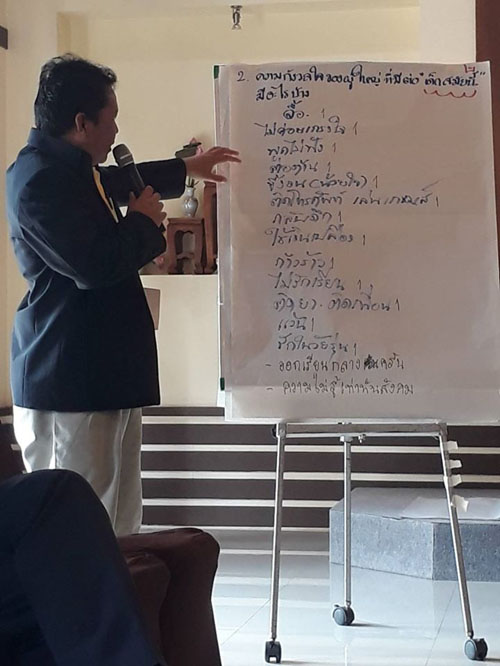 2. ความกังวลใจของผู้ใหญ่ ที่มีต่อ "เด็กสมัยนี้"
มีอะไรบ้าง
ดื้อ. /
ไม่ค่อยเกรงใจ /
พูดไม่ฟัง /
ขี้งอน (น้อยใจ) /
ติดโทรศัพท์ เล่นเกมส์ /
กลับดึก /
ใช้เงินเปลือง /
ก้าวร้าว /
ไม่รักเรียน /
ติดยา. ติดเพื่อน /
แว้น /
รักในวัยรุ่น /
- ออกเรียนกลางคัน
- ความไม่รู้เท่าทันสังคม